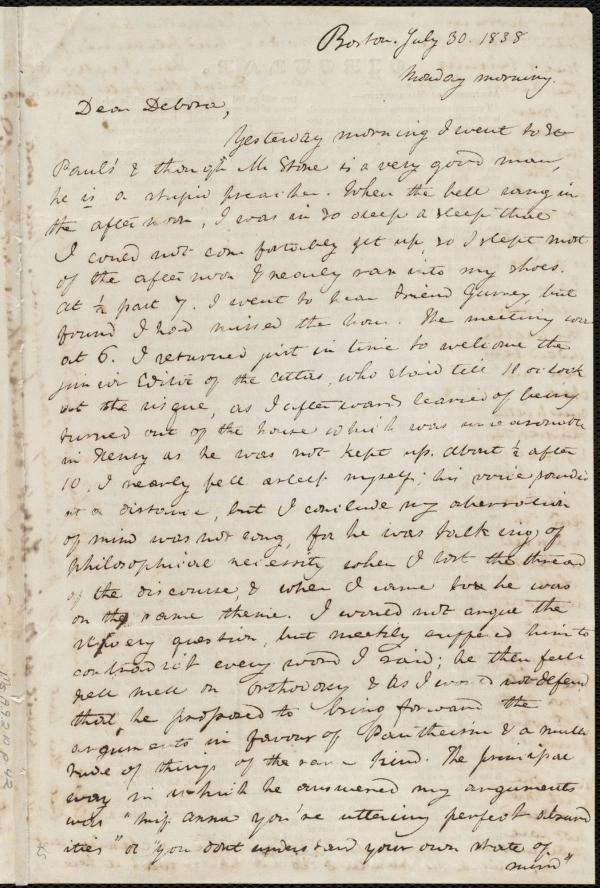 Boston. July 30. 1838
Monday morning.
Dear Debora,
Yesterday morning I went to St
Paul's & though Mr Stone is a very good man,
he is a stupid preacher. When the bell rang in
the afternoon, I was in so deep a sleep that
I could not comfortably get up, so I slept most
of the afternoon & nearly ran into my shoes.
At ½ past 7. I went to hear Friend Gurney, but
found I had missed the hour. The meeting was
at 6. I returned just in time to welcome the
junior Editor of the Atlas, who staid till 11 oclock
at the risque, as I afterwards learned of being
turned out of the house which was unreasonable
in Henry as he was not kept up. About ½ after
10, I nearly fell asleep myself; his voice sounded
at a distance, but I conclude my aberration
of mind was not long, for he was talking of
philosophical necessity when I lost the thread
of the discourse, & when I came to he was
on the same theme. I would not argue the
slavery question, but meekly suffered him to
contradict every word I said; he then fell
pell mell on Orthodoxy & as I would not defend
that, he proposed to bring forward the
arguments in favour of Pantheism & a multi
tude of things of the same kind. The principal
way in which he answered my arguments
was "Miss Anna you're uttering perfect absurd
ities" or "you dont understand your own state of
mind"